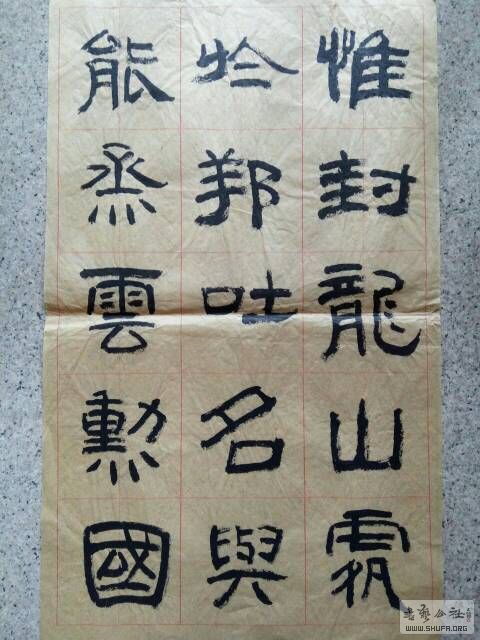 惟封龍山
於邦吐名與
能烝雲勲國
書藝公社
WWW.SHUFA.ORG